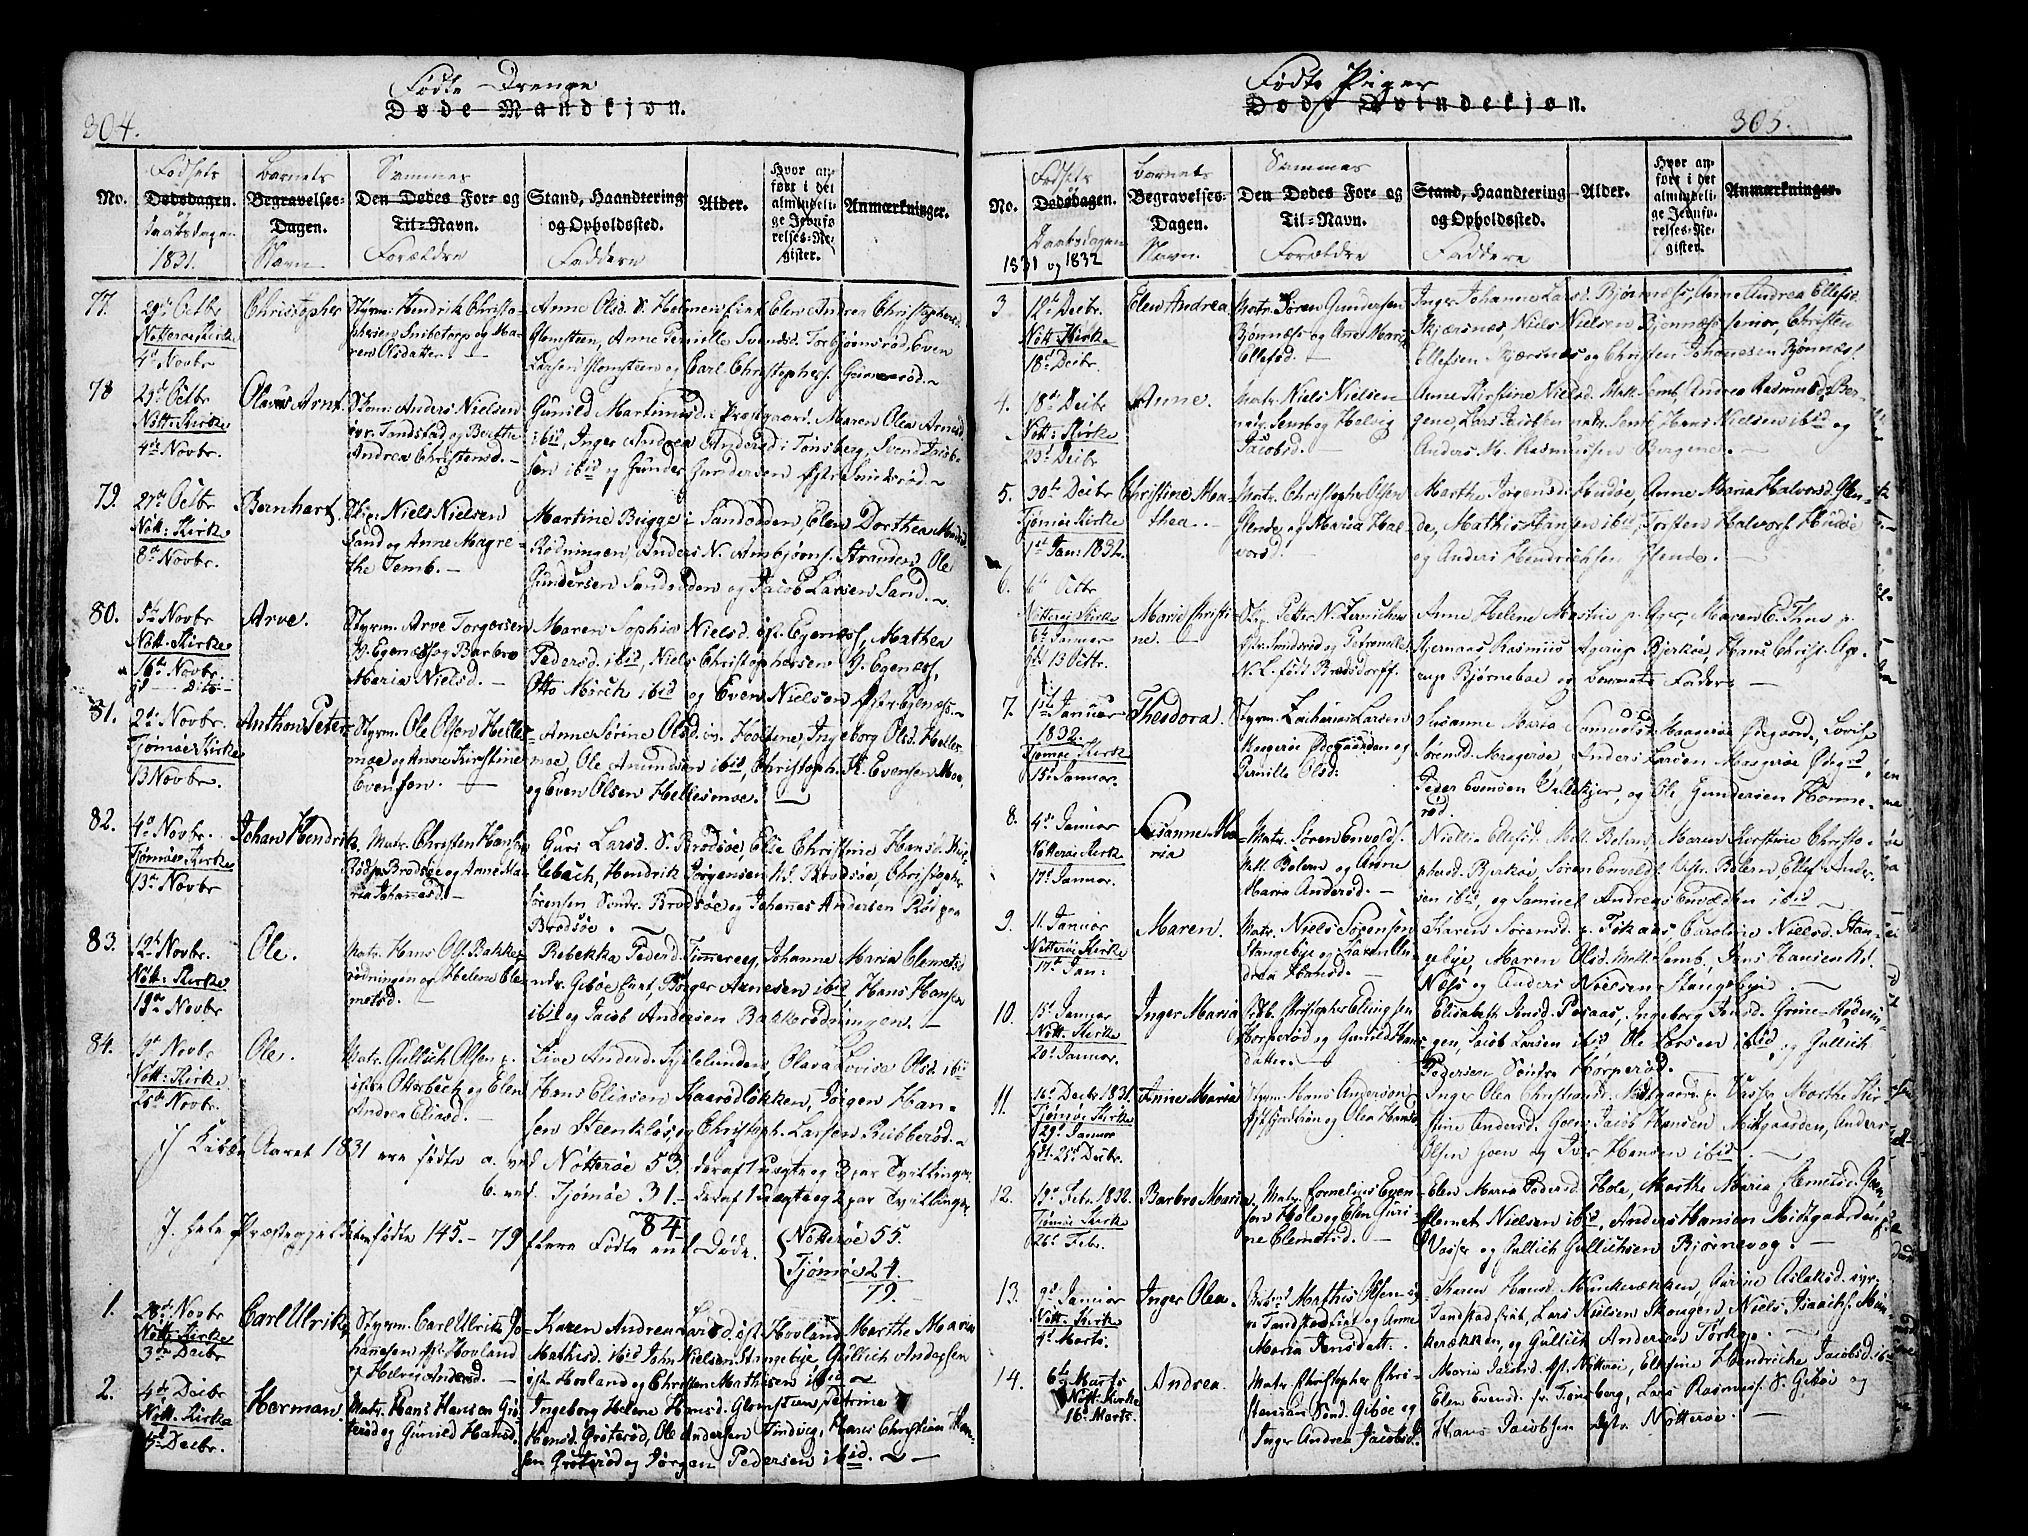 304.
Fødte Drenge
Døde Mandkjøn.
No.
Fødsels
Dødsdagen.
Daabsdagen
1831.
Barnets
Begravelses-
Dagen.
Navn
Sammes
Den Dødes For- og
Til-Navn.
Forældre
Stand, Haandtering
og Opholdssted.
Faddere
Alder.
Hvor an-
ført i det
almindeli-
ge Jevnfø-
relses-Re-
gister.
Anmærkninger.
77.
29de Octbr
Nötteröe Kirke
4de Novbr
Christopher
Styrm: Hendrik Christo-
phersen Smidstorp og Ma-
ren Olsdatter
Anne Olsd. S. Holmen Elen Andrea Christophersd.
Glomsteen, Anne Pernille Svendsd. Torbjørnsrød, Even
Larsen Glomsteen og Carl Christophers. Grimesrød.
78
29de Octbr
Nött: Kirke
4de Novbr.
Olaus Arnt
Skom: Anders Nielsen
Tandstad og Berthe
Andrea Christensd.
Gunild Martinusd. i Præstgaard, Maren Olea Arnesd
ibid, Inger Andrea Andersd i Tønsberg, Svend Jacob-
sen ibid og Gunder Gundersen Østre Smidsrød
79.
27de Octbr
Nött: Kirke
8de Novbr.
Bernhart
Skip: Niels Nielsen
Sand og Anne Magre-
the Semb.
Martine Bugge i Sandodden Elen Dorthea
Rödningen, Anders N. Ambjørns. Stranden, Ole
Gundersen Sandodden og Jacob Larsen Sand.
80.
5te Novbr
Nött: Kirke
16de Novbr
Arve.
Styrm: Arve Torgersen
Egenes og Barbro
Maria Nielsd.
Maren Sophie Nielsd. Egenes, Mathea
Pedersd. ibid, Niels Christophersen Egenes,
Otto Mörch ibid og Even Nielsen Egenes
81.
2de Novbr.
Tjömöe Kirke
13 Novbr.
Anthon Peter
Styrm: Ole Olsen Helles-
moe og Anne Kirstine
Evensen.
Anne Sörine Olsd. Holtene, Ingeborg Olsd. Helles-
moe, Ole Amundsen ibid, Christoph. Evensen Moe,
og Even Olsen Hellesmoe.
82.
4de Novbr.
Tjömöe Kirke
13de Novbr.
Johan Hendrik
Matr. Christen Hansen
Rød p. Brødsöe og Anne Ma-
ria Johannesd.
Guri Larsd. S. Brødsöe, Elise Christine Hansd.
Hendrik Jørgensen Brødsöe, Christopher
Sörensen Söndr. Brødsöe og Johannes Andersen Rød paa
Brødsöe.
83.
12te Novbr.
Nött: Kirke
19de Novbr
Ole.
Matr. Hans Ols. Bakke-
rödningen og Helene Cle-
metsd.
Rebekka Pedersd. Johanne Maria Clemetsd
Giböe Börger Arnesen ibid, Hans Hansen
ibid og Jacob Andersen Bakkerödningen.
84.
9de Novbr
Nött: Kirke
25de Novbr.
Ole.
Matr. Gullich Olsen
Otterbeck og Elen
Andrea Eliasd.
Live Andersd. Olava Lovise Olsd. ibid
Hans Eliasen Haarødlökken, Jørgen Han-
sen Steenklös, og Christoph. Larsen Rubberød.
I Aaret 1831 ere fødte a. ved Nötteröe 53. deraf 1 uægte og 3 par Tvillinger
b. ved Tjömöe 31 - deraf 1 uægte og 2 par Tvillinger
84.
I hele Præstegjeldet fødte 145. - 79 flere Fødte end Døde.
Nötteröe 55.
Tjömöe 24.
79.
1.
28de Novbr
Nött: Kirke
3de Decbr
Carl Ulrik
Styrm. Carl Ulrik Jo-
hanesen Hovland
og Helvig Andersd.
Karen Andrea Larsd. Öst. Hovland, Marthe Maria
Mathisd. ibid John Nielsen Stangebye, Gullich Andersen
Öst. Hovland og Christen Mathisen ibid
2.
4de Decbr
Nött: Kirke
15de Decbr.
Herman.
Matr. Hans Hansen Grø-
terød og Gunild Hansd.
Ingeborg Helene Hansd. Glomsteen Petrine
Hansd. Grøterød, Ole Andersen Tindvig, Hans Christian Han-
sen Grøterød og Jørgen Pedersen ibid.
305.
Fødte Piger
Døde Qvindekjøn.
No.
Fødsels
Dødsdagen.
Daabsdagen
1831 og 1832
Barnets
Begravelses-
Dagen.
Navn
Sammes
Den Dødes For- og
Til-Navn.
Forældre
Stand, Haandtering
og Opholdssted.
Faddere
Alder.
Hvor an-
ført i det
almindeli-
ge Jevnfø-
relses-Re-
gister.
Anmærkninger.
3
12te Decbr.
Nött: Kirke
18de Decbr.
Elen Andrea
Matr. Sören Gundersen
Bjønnes og Ane Marie
Ellefsd.
Inger Johanne Larsd. Bjørnæss, Anne Andrea Ellefsd.
Skjærsnæs Niels Nielsen Bjønnæs senior, Christen
Ellefsen Skjærsnæs og Christen Johannesen Bjønnæs.
4.
18de Decbr
Nött: Kirke
29de Decbr
Anne.
Matr. Niels Nielsen
Semb og Helvig
Jacobsd.
Anne Kirstine Nielsd. Mell. Semb, Andrea Rasmusd. Ber-
gene, Lars Jacobsen Semb Hans Nielsen ibid og
Anders M. Rasmussen Bergene.
5.
30te Decbr
Tjömöe Kirke
1ste Jan: 1832.
Christine Ma-
thea.
Matr. Christopher Olsen
Glende og Maria Hal-
vorsd.
Marthe Jørgensd. Hudöe, Anne Maria Halvorsd. Glen-
de, Mathis Hansen ibid, Torsten Halvors. Hudöe
og Anders Hendrichsen Glende.
6.
6te Octbr
Nötteröe Kirke
6te Januar
Marie Christi-
ne.
Skip. Peter N.
Östr. Smidsrød og Petronelle
N. L. född Bredsdorff.
Anne Helene p. Agerup, Maren E. Thue p.
Kjernaas Rasmus Agerup Bjerköe, Hans Christ. Age-
rup Bjørneboe og barnets Fader.
7.
1ste Januar
1832.
Tjömöe Kirke
15de Januar.
Theodora.
Styrm. Zacharias Larsen
Magerøe Ødegaarden og
Pernille Olsd:
Susanne Maria Samuelsd. Maageröe Ødegaard, Lovise
Sörensd. Mageröe, Anders Larsen Mageröe, Ødegrd,
Peder Evensen Vallekjer, og Ole Gundersen Honne-
rød.
8.
4de Januar
Nötteröe Kirke
17de Januar.
Lisanne Ma-
ria
Matr. Sören Envolds.
Mell. Bolærn og Anne
Maria Andersd.
Nielle Ellefsd. Mell. Bolærn, Maren Kirstine Christo-
phersd. Bjerköe, Sören Envolds. Vestr. Bolern, Ellef Ander-
sen ibid, og Samuel Andreas Envolden ibid
9.
11. Januar
Nötteröe Kirke
17de Jan:
Maren.
Matr. Niels Sørensen
Stangebye og Karen An-
drea Hansd.
Karen Sörensd. p. Fikaas Caroline Nielsd. Stan-
gebye, Maren Olsd. Mell. Semb, Jens Hansen
Næss og Anders Nielsen Stangebye.
10.
15de Januar
Nött: Kirke
20de Januar.
Inger Maria
Christopher Ellingsen
Horperød og Gunild Han-
datter.
Elisabeth Amsd. Ingeborg Jensd. Grime-Rödnin-
gen, Jacob Larsen ibid Ole Larsen ibid, og Gullich
Pedersen Söndre Hörperød.
11.
16de Decbr 1831.
Tjömöe Kirke
29de Januar
Anne Maria
Styrm: Hans Andersen
og Olea Hansd
Inger Olea Christiansd. Midtgaard p. Vasser Marthe Kir-
stine Andersd. Goen, Jacob Hansen Midtgaarden, Anders
Olsen Goen og Iver Hansen ibid.
12.
19de Febr. 1832.
Tjömöe Kirke
26de Febr.
Barbro Maria
Matr. Cornelius Even-
sen Hole og Elen Guri-
ne Clemetsd.
Elen Maria Pedersd. Hole, Marthe Maria Clemetsd.
Clemet Nielsen ibid, Anders Hansen Midtgaarden p.
Vasser og Gullich Gullichsen Bjørnevog.
13.
9de Januar
Nött: Kirke
4de Marts.
Inger Olea.
Mathis Olsen
Tandstad og Anne
Maria Jensdatt.
Karen Hansd. Munkerækken, Aurine Aslaksd.
Tandstad Lars Nielsen Skougen, Niels Isachs. Mun-
kerækken, og Gullich Andersen Törkop.
14.
6te Marts
Nött: Kirke
16de Marts.
Andrea.
Matr. Christopher Chri-
stensen Sönd. Giböe og
Inger Andrea Jacobsd.
Maria Jacobsd. Ellefine Hendricke Jacobsd. ibid
Elen Evensd. pr. Tønsberg, Lars Rasmuss. S. Giböe og
Hans Jacobsen Nötteröe.